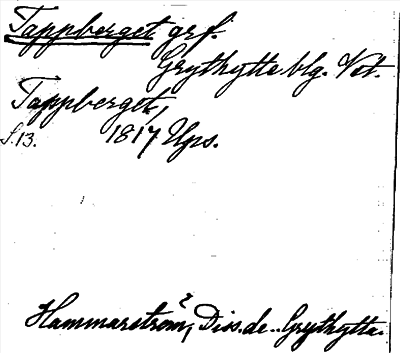 Tappberget grf.
Grythytte blg. Vst.
Tappberget,
s. 13. 1817 Ups.
Hammarström, Diss. de.. Grythytta.